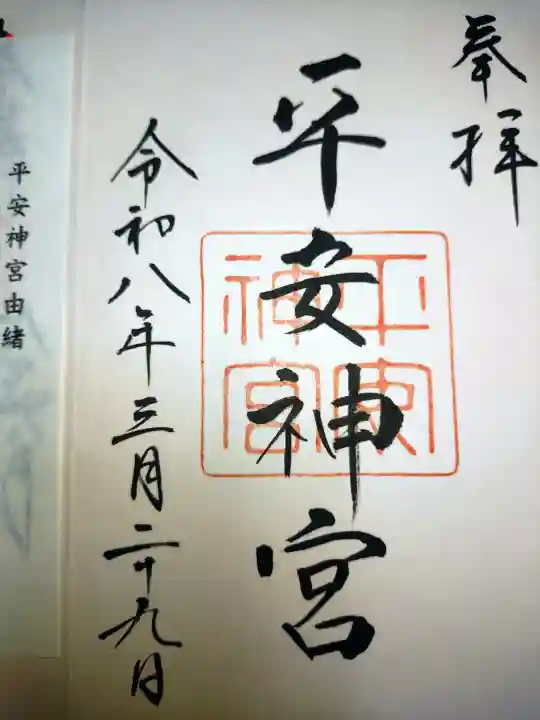 奉拝
平安神宮
平安神宮
令和八年三月二十九日
平安神宮由緒